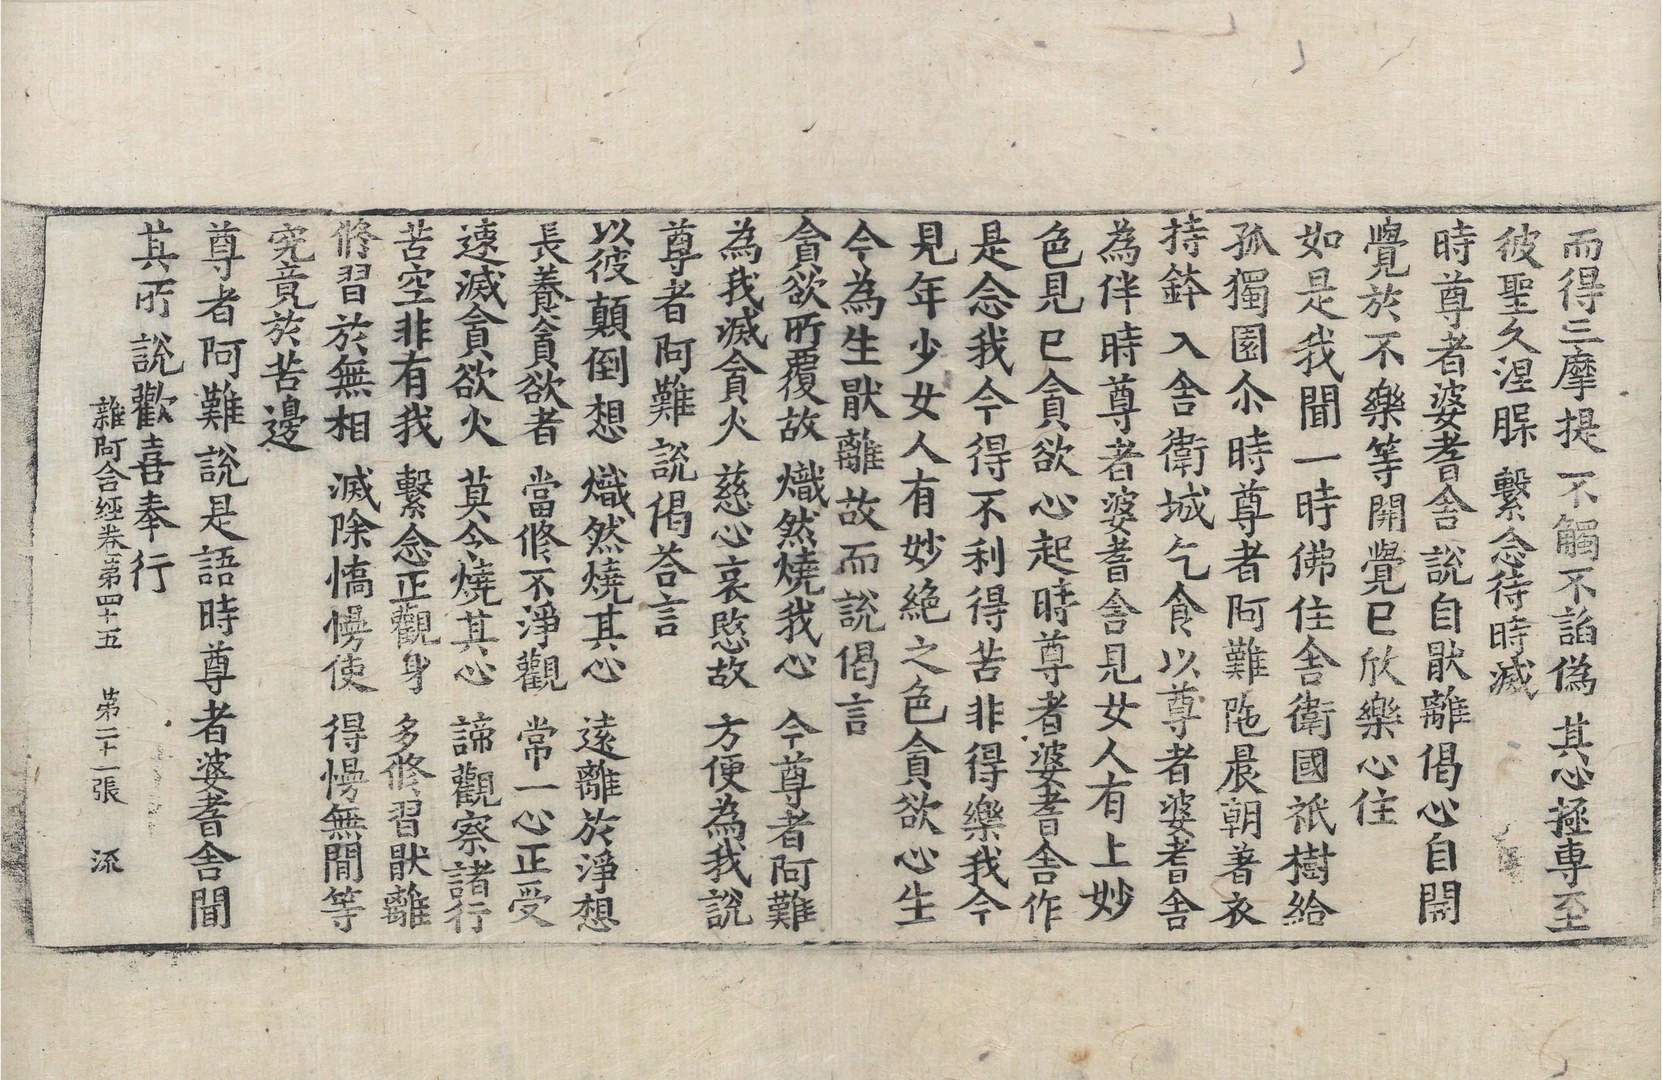 而得三摩提　不觸不諂偽　其心極專至
彼聖久涅脲　繫念待時滅
時尊者婆耆舍說自猒離偈心自開
覺於不樂等開覺已欣樂心住
如是我聞一時佛住舍衛國祇樹給
孤獨園尒時尊者阿難陁晨朝著衣
持鉢入舍衛城乞食以尊者婆耆舍
為伴時尊者婆耆舍見女人有上妙
色見已貪欲心起時尊者婆耆舍作
是念我今得不利得苦非得樂我今
見年少女人有妙絶之色貪欲心生
今為生猒離故而說偈言
貪欲所覆故　熾然燒我心　今尊者阿難
為我滅貪火　慈心哀愍故　方便為我說
尊者阿難說偈荅言
以彼顛倒想　熾然燒其心　遠離於淨想
長養貪欲者　當修不淨觀　常一心正受
速滅貪欲火　莫令燒其心　諦觀察諸行
苦空非有我　繫念正觀身　多修習猒離
修習於無相　滅除憍慢使　得慢無閒等
究竟於苦邊
尊者阿難說是語時尊者婆耆舍聞
其所說歡喜奉行
雜阿含經卷第四十五　第二十二張　流